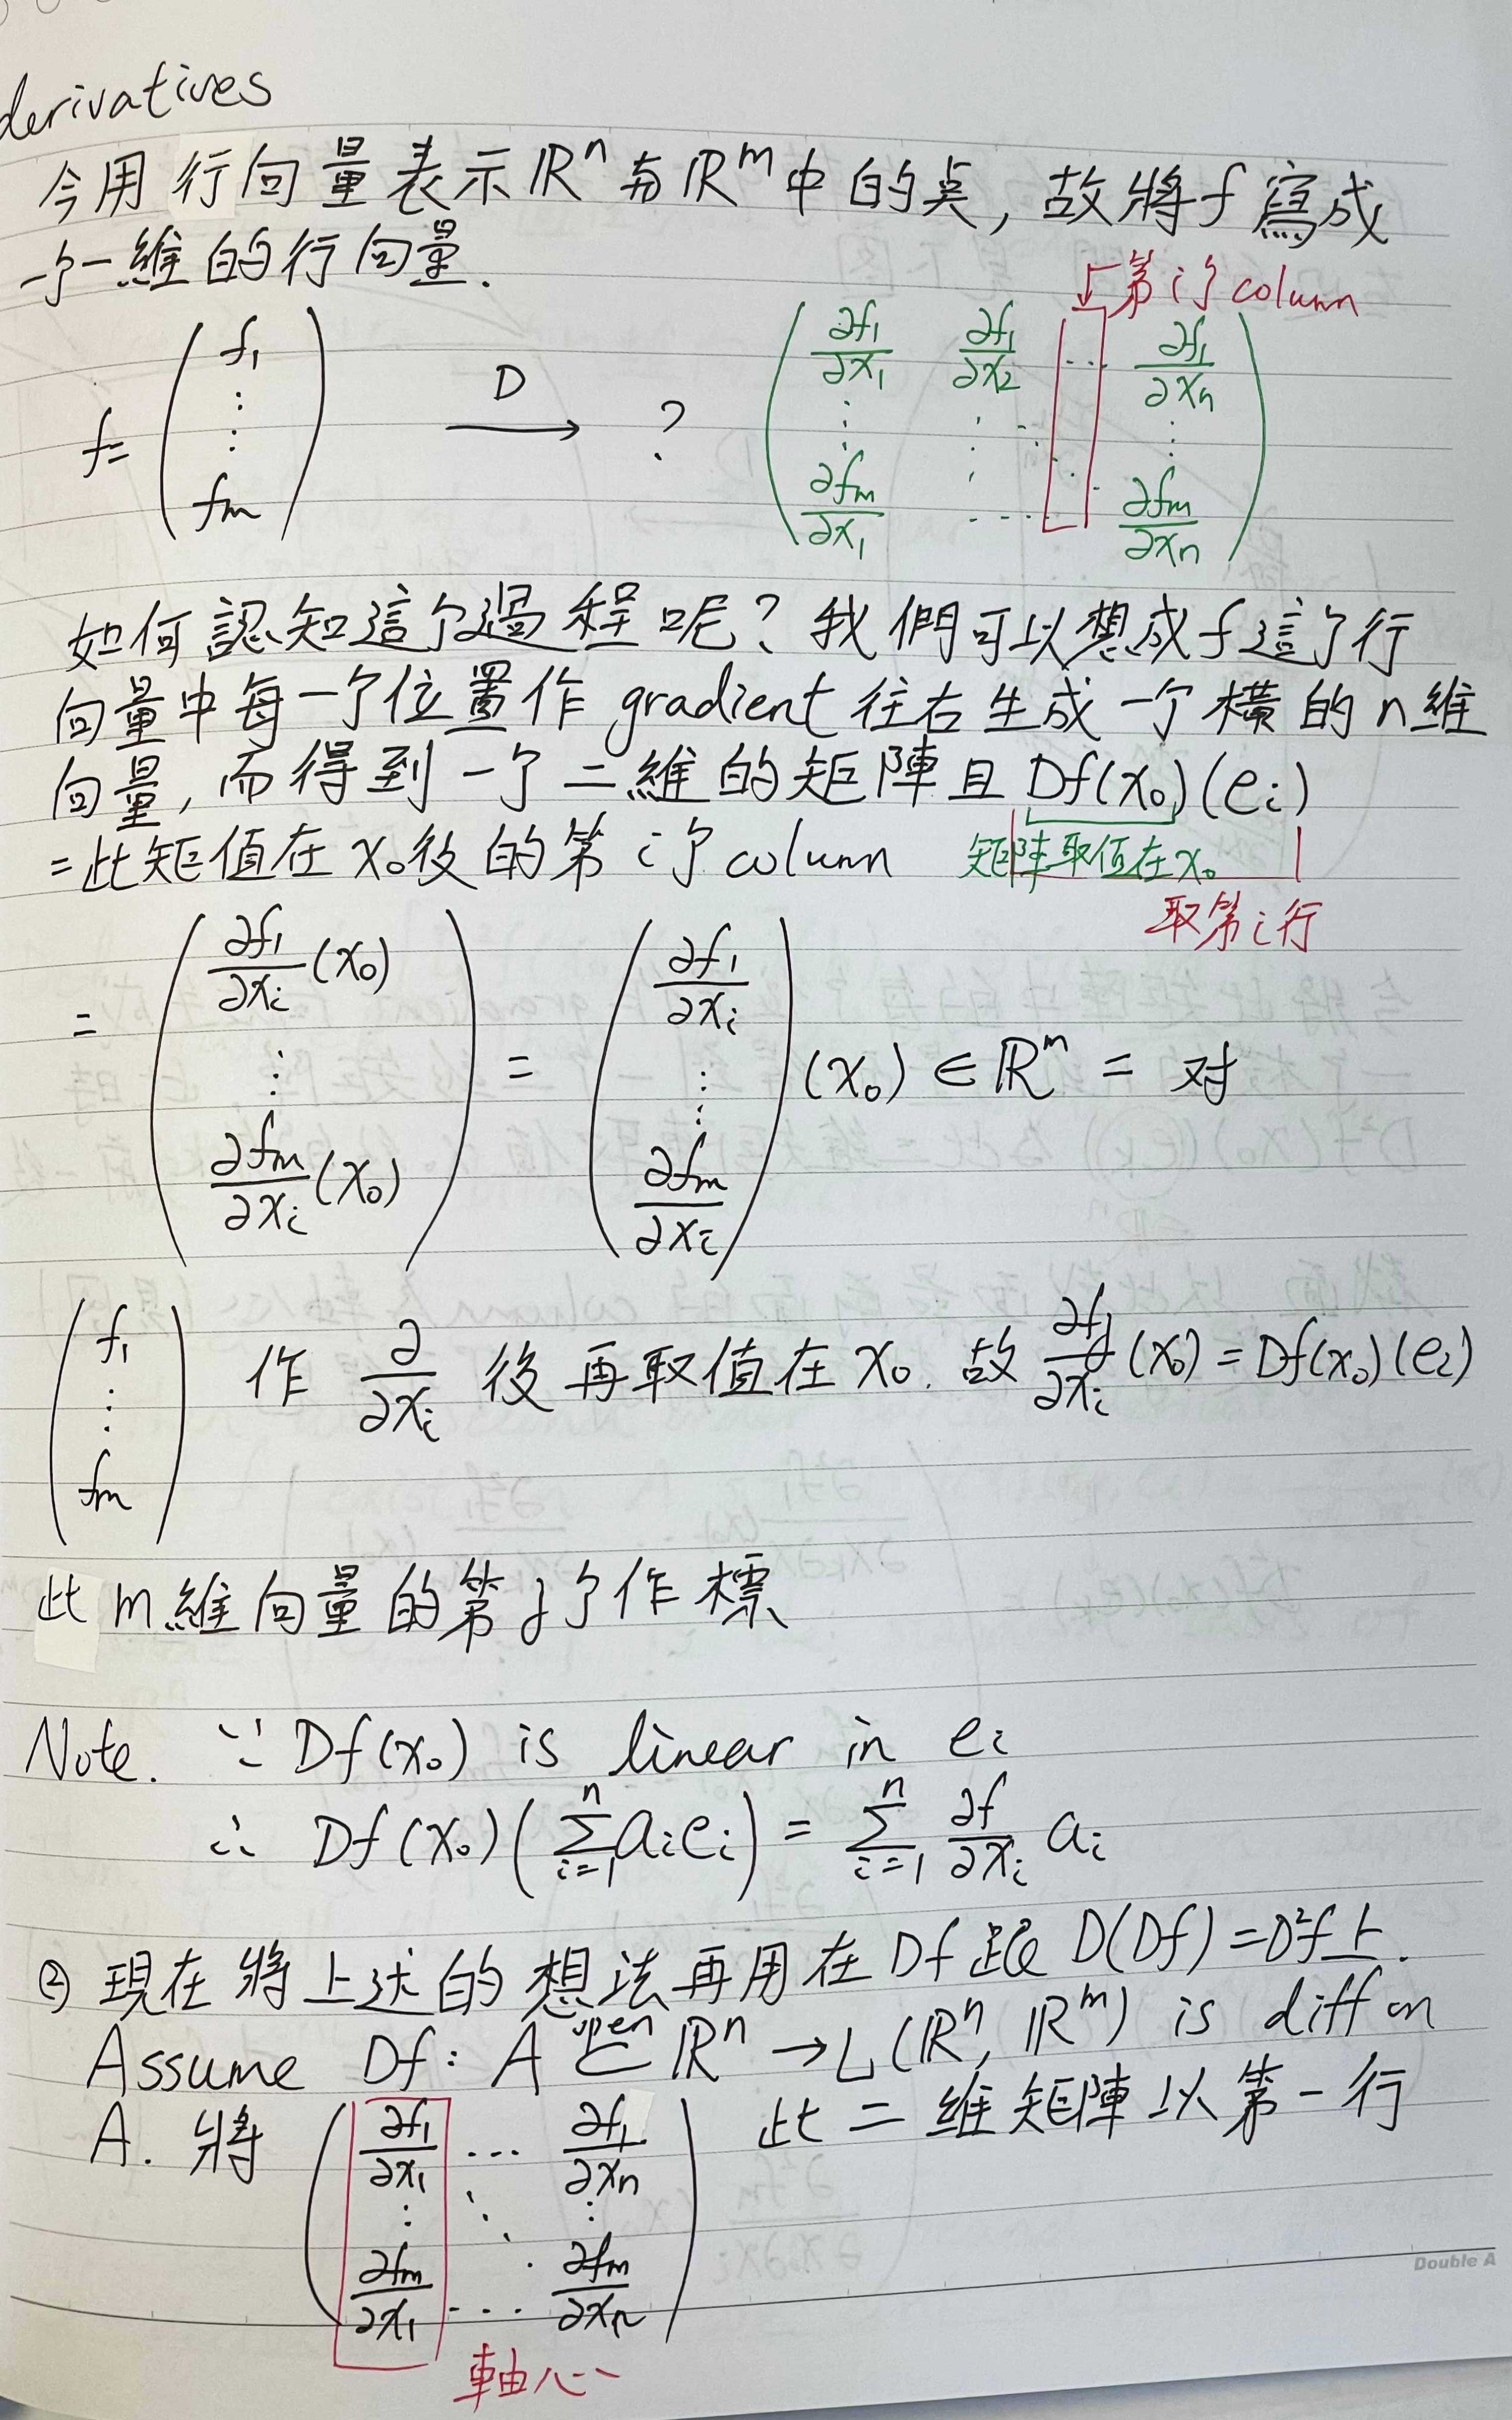 derivatives
今用行向量表示 ℝⁿ 与 ℝᵐ 中的奌, 故將 f 寫成
一个一維的行向量.
↓第 i 个 column
f = ( f₁ ⋮ fₘ ) —D→ ? ( ∂f₁/∂x₁ ∂f₁/∂x₂ ⋯ ∂f₁/∂xₙ ⋮ ⋱ ⋮ ∂fₘ/∂x₁ ⋯ ∂fₘ/∂xₙ )
如何認知這个過程呢? 我們可以想成 f 這个行
向量中每一个位置作 gradient 往右生成一个橫的 n 維
向量, 而得到一个二維的矩陣且 Df(x₀)(eᵢ)
= 此矩值在 x₀ 後的第 i 个 column 矩陣取值在 x₀
取第 i 行
= ( ∂f₁/∂xᵢ (x₀) ⋮ ∂fₘ/∂xᵢ (x₀) ) = ( ∂f₁/∂xᵢ ⋮ ∂fₘ/∂xᵢ ) (x₀) ∈ ℝᵐ = 对
( f₁ ⋮ fₘ ) 作 ∂/∂xᵢ 後再取值在 x₀. 故 ∂fⱼ/∂xᵢ (x₀) = Df(x₀)(eᵢ)
此 m 維向量的第 j 个作標
Note. ∵ Df(x₀) is linear in eᵢ
∴ Df(x₀)( ∑ᵢ₌₁ⁿ aᵢeᵢ ) = ∑ᵢ₌₁ⁿ ∂f/∂xᵢ aᵢ
② 現在將上述的想法再用在 Df 跟 D(Df) = D²f 上.
Assume Df: A ⊂open ℝⁿ → L(ℝⁿ, ℝᵐ) is diff on
A. 將 ( ∂f₁/∂x₁ ⋯ ∂f₁/∂xₙ ⋮ ⋱ ⋮ ∂fₘ/∂x₁ ⋯ ∂fₘ/∂xₙ ) 此二維矩陣以第一行
軸心
Double A